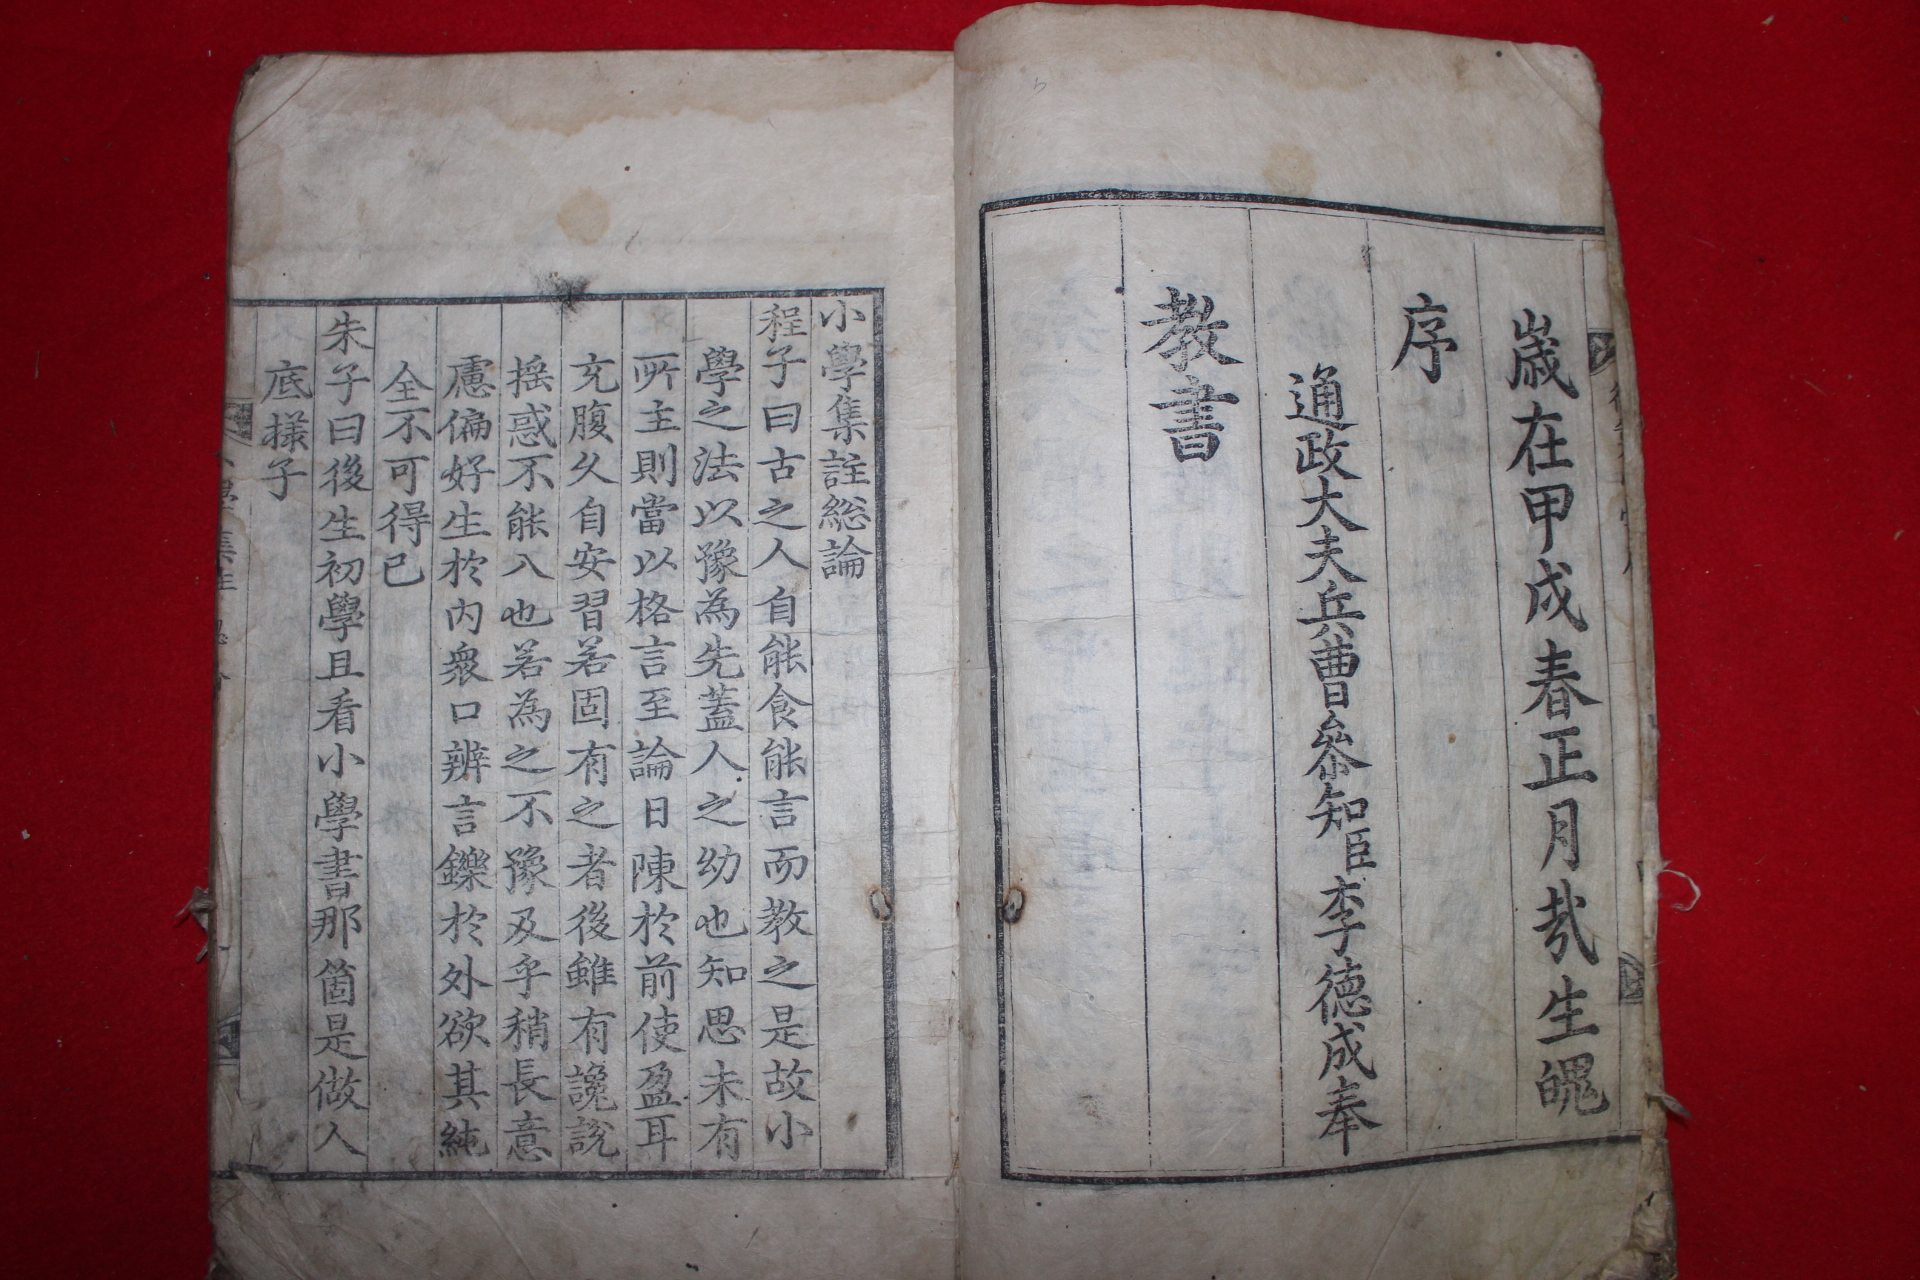 歲在甲戌春正月哉生魄
序
通政大夫兵曹叅知臣李德成奉
教書
小學集註総論
程子曰古之人自能食能言而教之是故小
學之法以豫為先蓋人之幼也知思未有
所主則當以格言至論日陳於前使盈耳
充腹久自安習若固有之者後雖有讒說
揺惑不能入也若為之不豫及乎稍長意
慮偏好生於內衆口辨言鑠於外欲其純
全不可得已
朱子曰後生初學且看小學書那箇是做人
底樣子